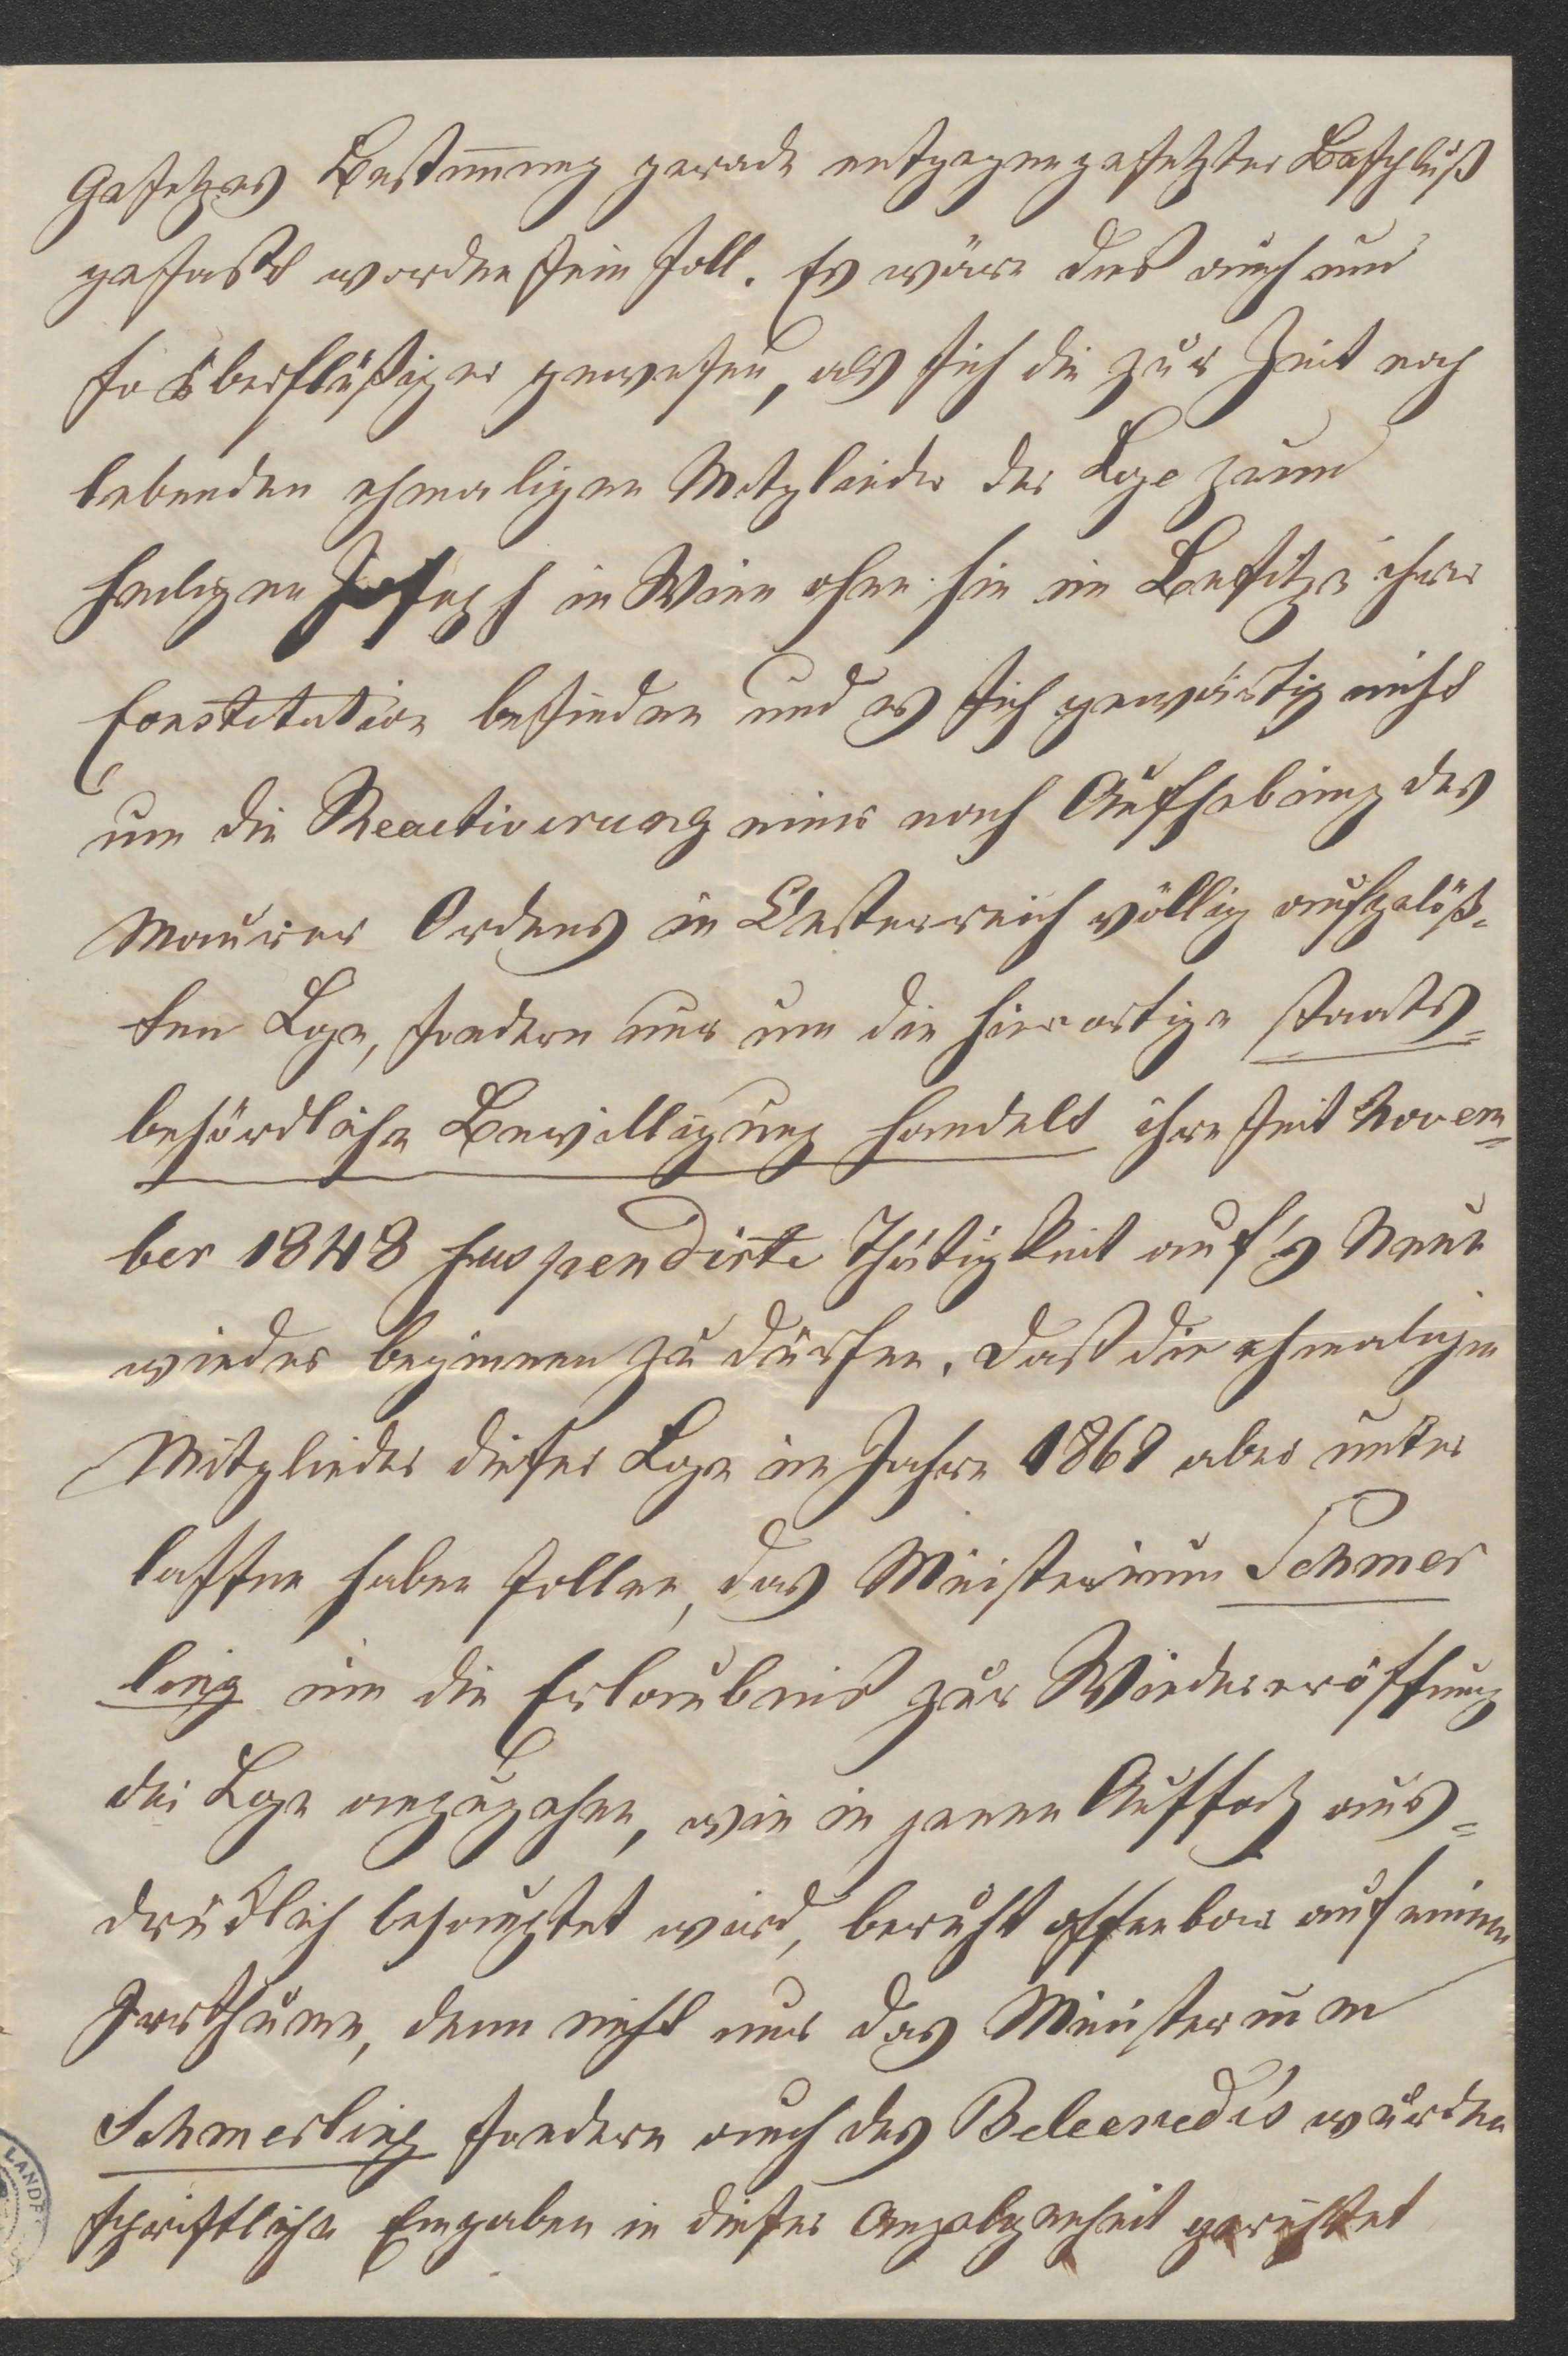 Gesetzes Bestim̄ung gerade entgegengesetzter Beschluß
gefasst worden sein soll. Es wäre dies auch um
so überflüßiger gewesen, als sich die zur Zeit noch
lebenden ehmaligen Mitglieder der Loge zum
heiligen Joseph in Wien ohne hin im Besitze ihrer
Constitution befinden und es sich gewärtig nicht
um die Reactivierung einer nach Aufhebung des
Maurer Ordens in Oesterreich völlig aufgelöß-
ten Loge, sondern nur um die hierortige staats=
behördliche Bewilligung handelt ihre seit Novem=
ber 1848 suspendirte Thätigkeit auf's Neue
wieder beginnen zu dürfen. Daß die ehmaligen
Mitglieder dieser Loge im Jahre 1868 aber unter
lassen haben sollen, das Ministerium Schmer
ling um die Erlaubniß zur Wiedereröffnung
der Loge anzugehen, wie in jenem Aufsatz aus=
drücklich behauptet wird, beruht offenbar auf einem
Irrthume, denn nicht nur das Ministerium
Schmerling sondern auch des Belcredis wurden
schriftliche Eingaben in dieser Angelegenheit gerichtet
LANDE